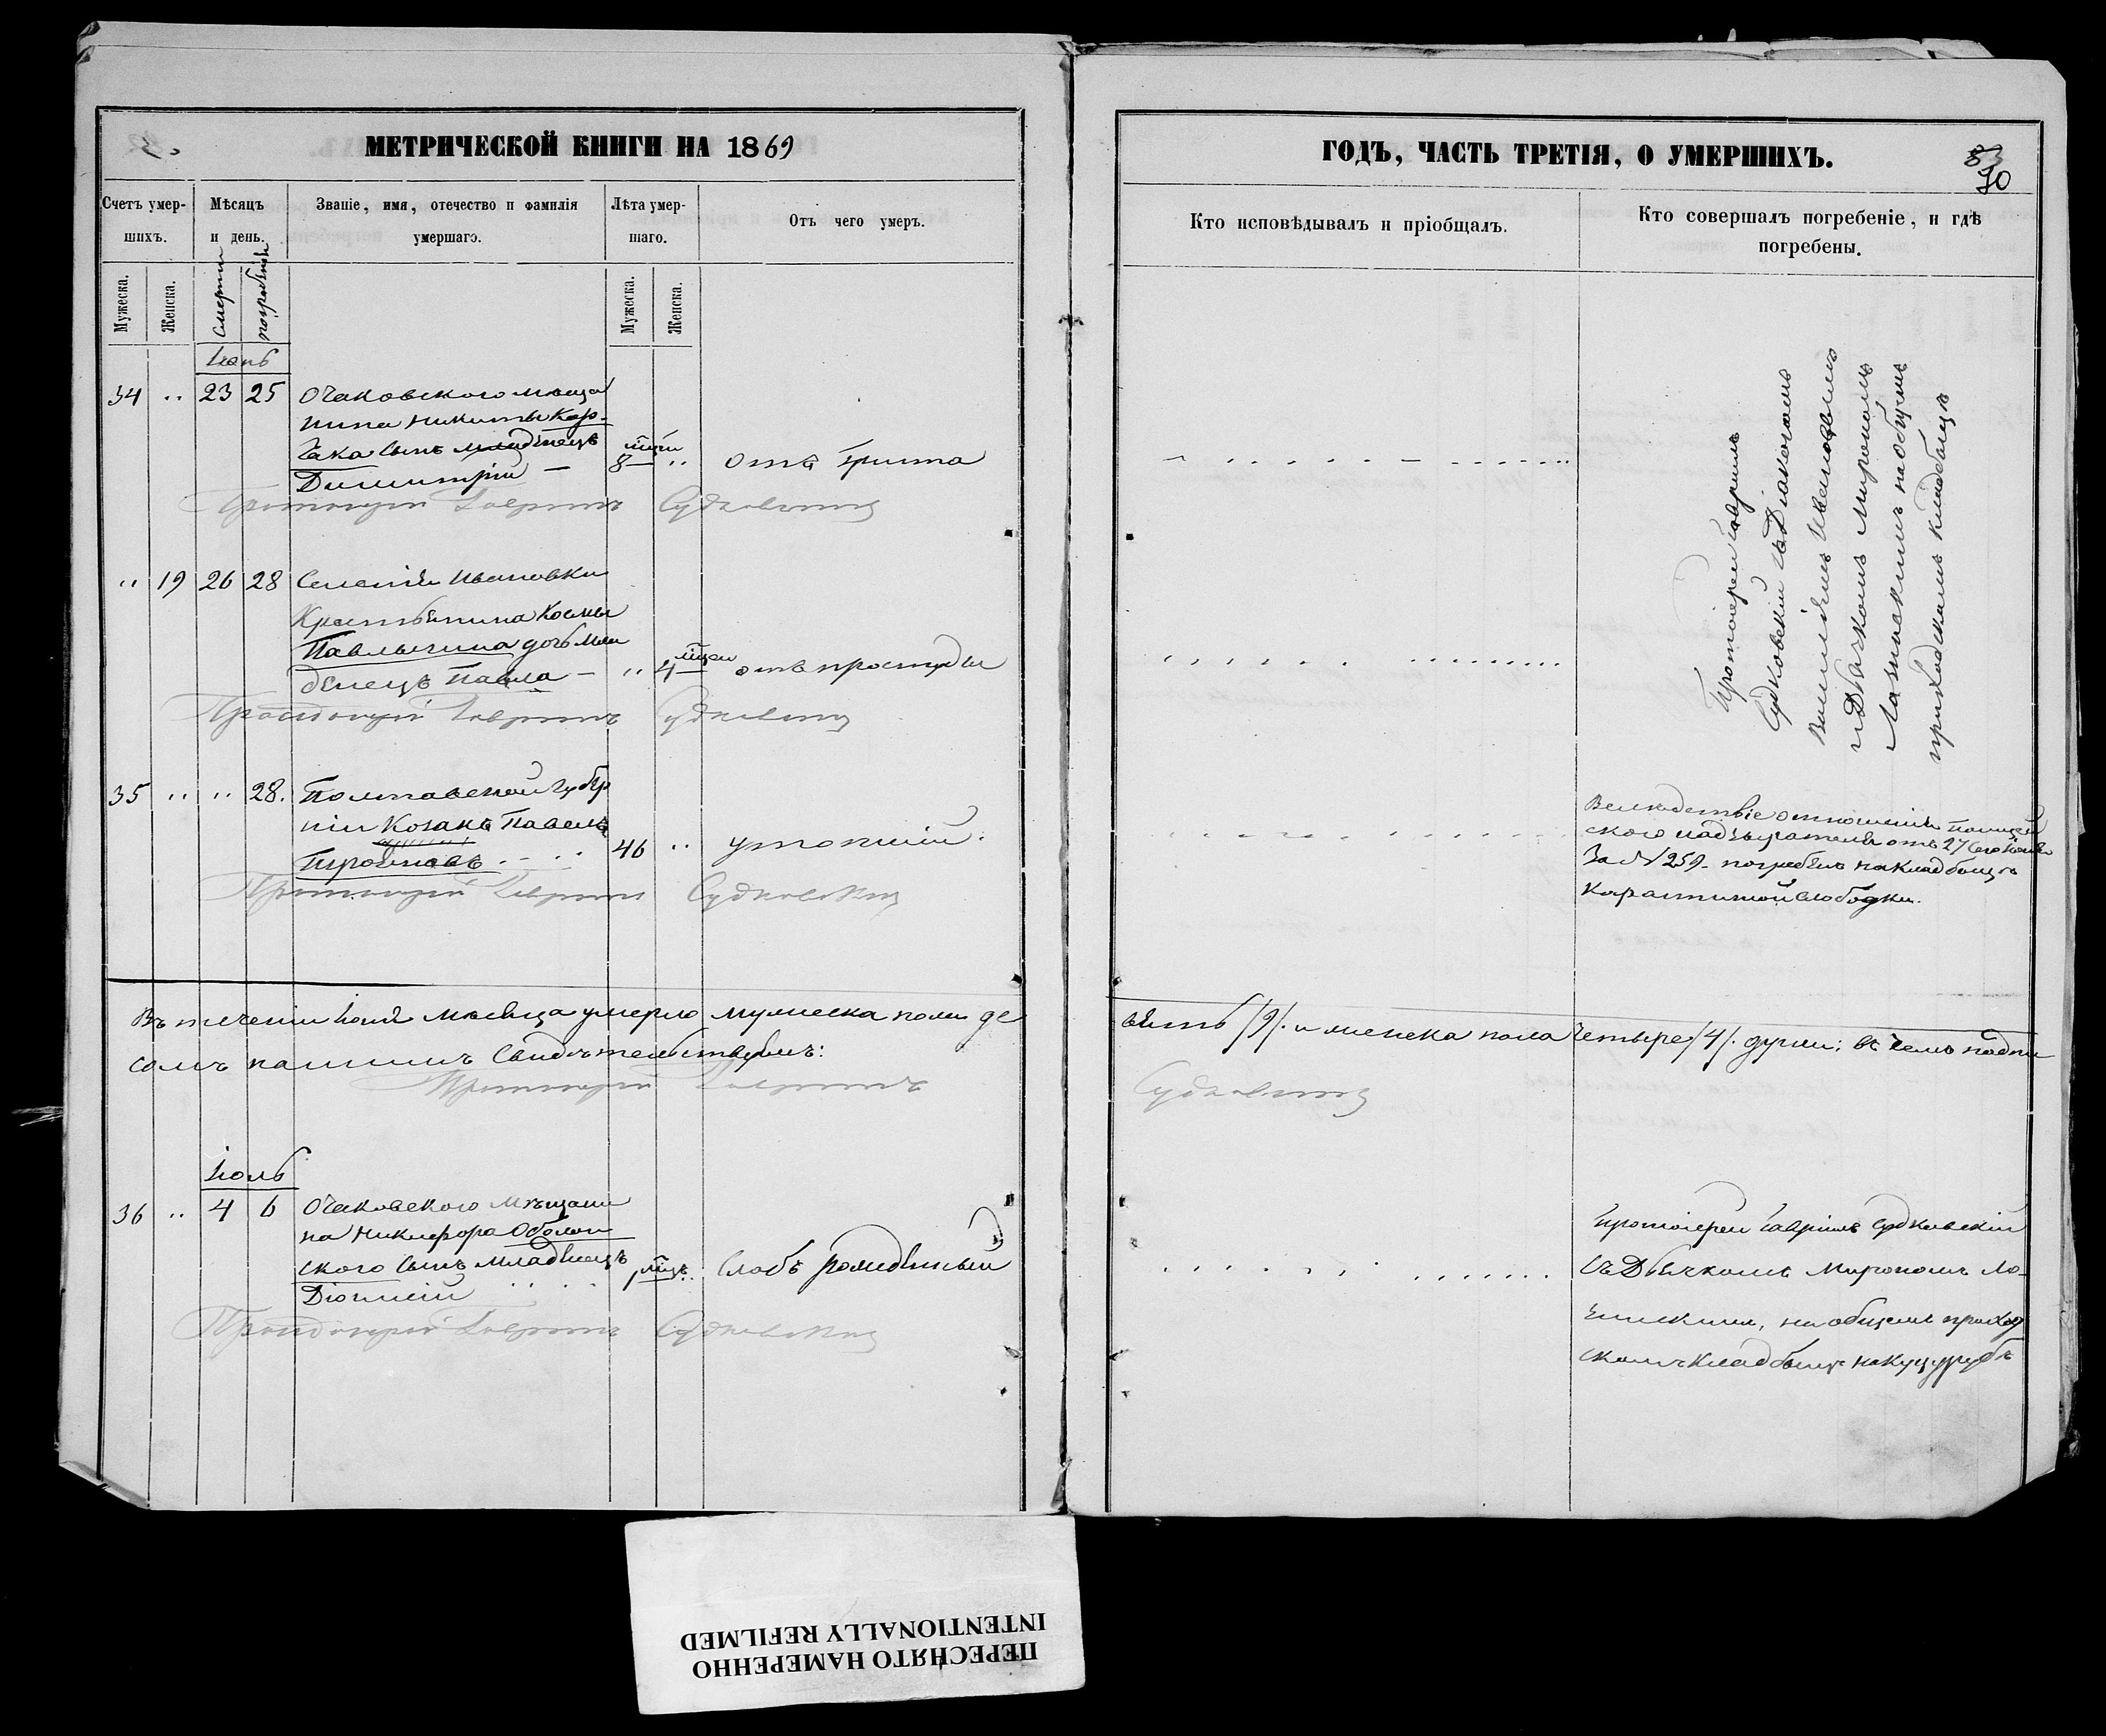 МЕТРИЧЕСКОЙ КНИГИ НА 1869
Счетъ умер-
шихъ.
Мѣсяцъ
и день.
Званіе, имя, отечество и фамилія
умершаго.
Лѣта умер-
шаго.
Отъ чего умеръ.
Мужеска.
Женска.
Смерти
погребенія
Мужеска.
Женска.
Іюнь
34 " 23 25 Очаковского мѣща
нина Никиты Кор-
чака сынъ младенецъ
Димитрій —
8 " отъ
Протоіерей Гавріилъ Судковскій
" 19 26 28 Селенія Ивановки
Крестьянина Космы
Павлычина дочь мла
денецъ Павла —
" 4 отъ простуды
Протоіерей Гавріилъ Судковскій
35 " " 28. Полтавской губер
ніи Козакъ Павелъ
46 " утопшій.
Протоіерей Гавріилъ Судковскій
Въ теченіи Іюня мѣсяца умерло мужеска пола де
самъ нашимъ свидѣтельствуемъ:
Протоіерей Гавріилъ
Іюль
36 " 4 6 Очаковского мѣщани
на Никифора Оболон
ского сынъ младенецъ
Діонисій
1 мѣц. слабъ рожденный
Протоіерей Гавріилъ Судковскій
ГОДЪ, ЧАСТЬ ТРЕТІЯ, О УМЕРШИХЪ.
70
Кто исповѣдывалъ и пріобщалъ.
Кто совершалъ погребеніе, и гдѣ
погребены.
Протоіерей Гавріилъ
Судковскій съ Діакономъ
Василіемъ
и Дьячкомъ Мирономъ
на общемъ
приходскомъ кладбищѣ
Вследствіе отношенія полицей
ского надзирателя отъ 27 сего Іюня
За № 259 погребенъ на кладбищѣ
Карантинной слободки.
вять /9/. и женска пола четыре /4/. души; въ чемъ подпи
Судковскій
Протоіерей Гавріилъ Судковскій
съ Дьячкомъ Мирономъ Ло-
на общемъ приход
скомъ кладбищѣ на Куцурубѣ
ПЕРЕСНЯТО НАМЕРЕННО
INTENTIONALLY REFILMED